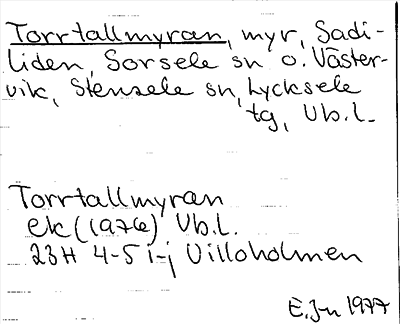 Torrtallmyran, myr, Sadi-
liden, Sorsele sn o. Väster-
vik, Stensele sn, Lycksele
tg, Vb.l.
Torrtallmyran
ek (1976) Vb.l.
23H 4-5 i-j Villoholmen
E. J-n 1977